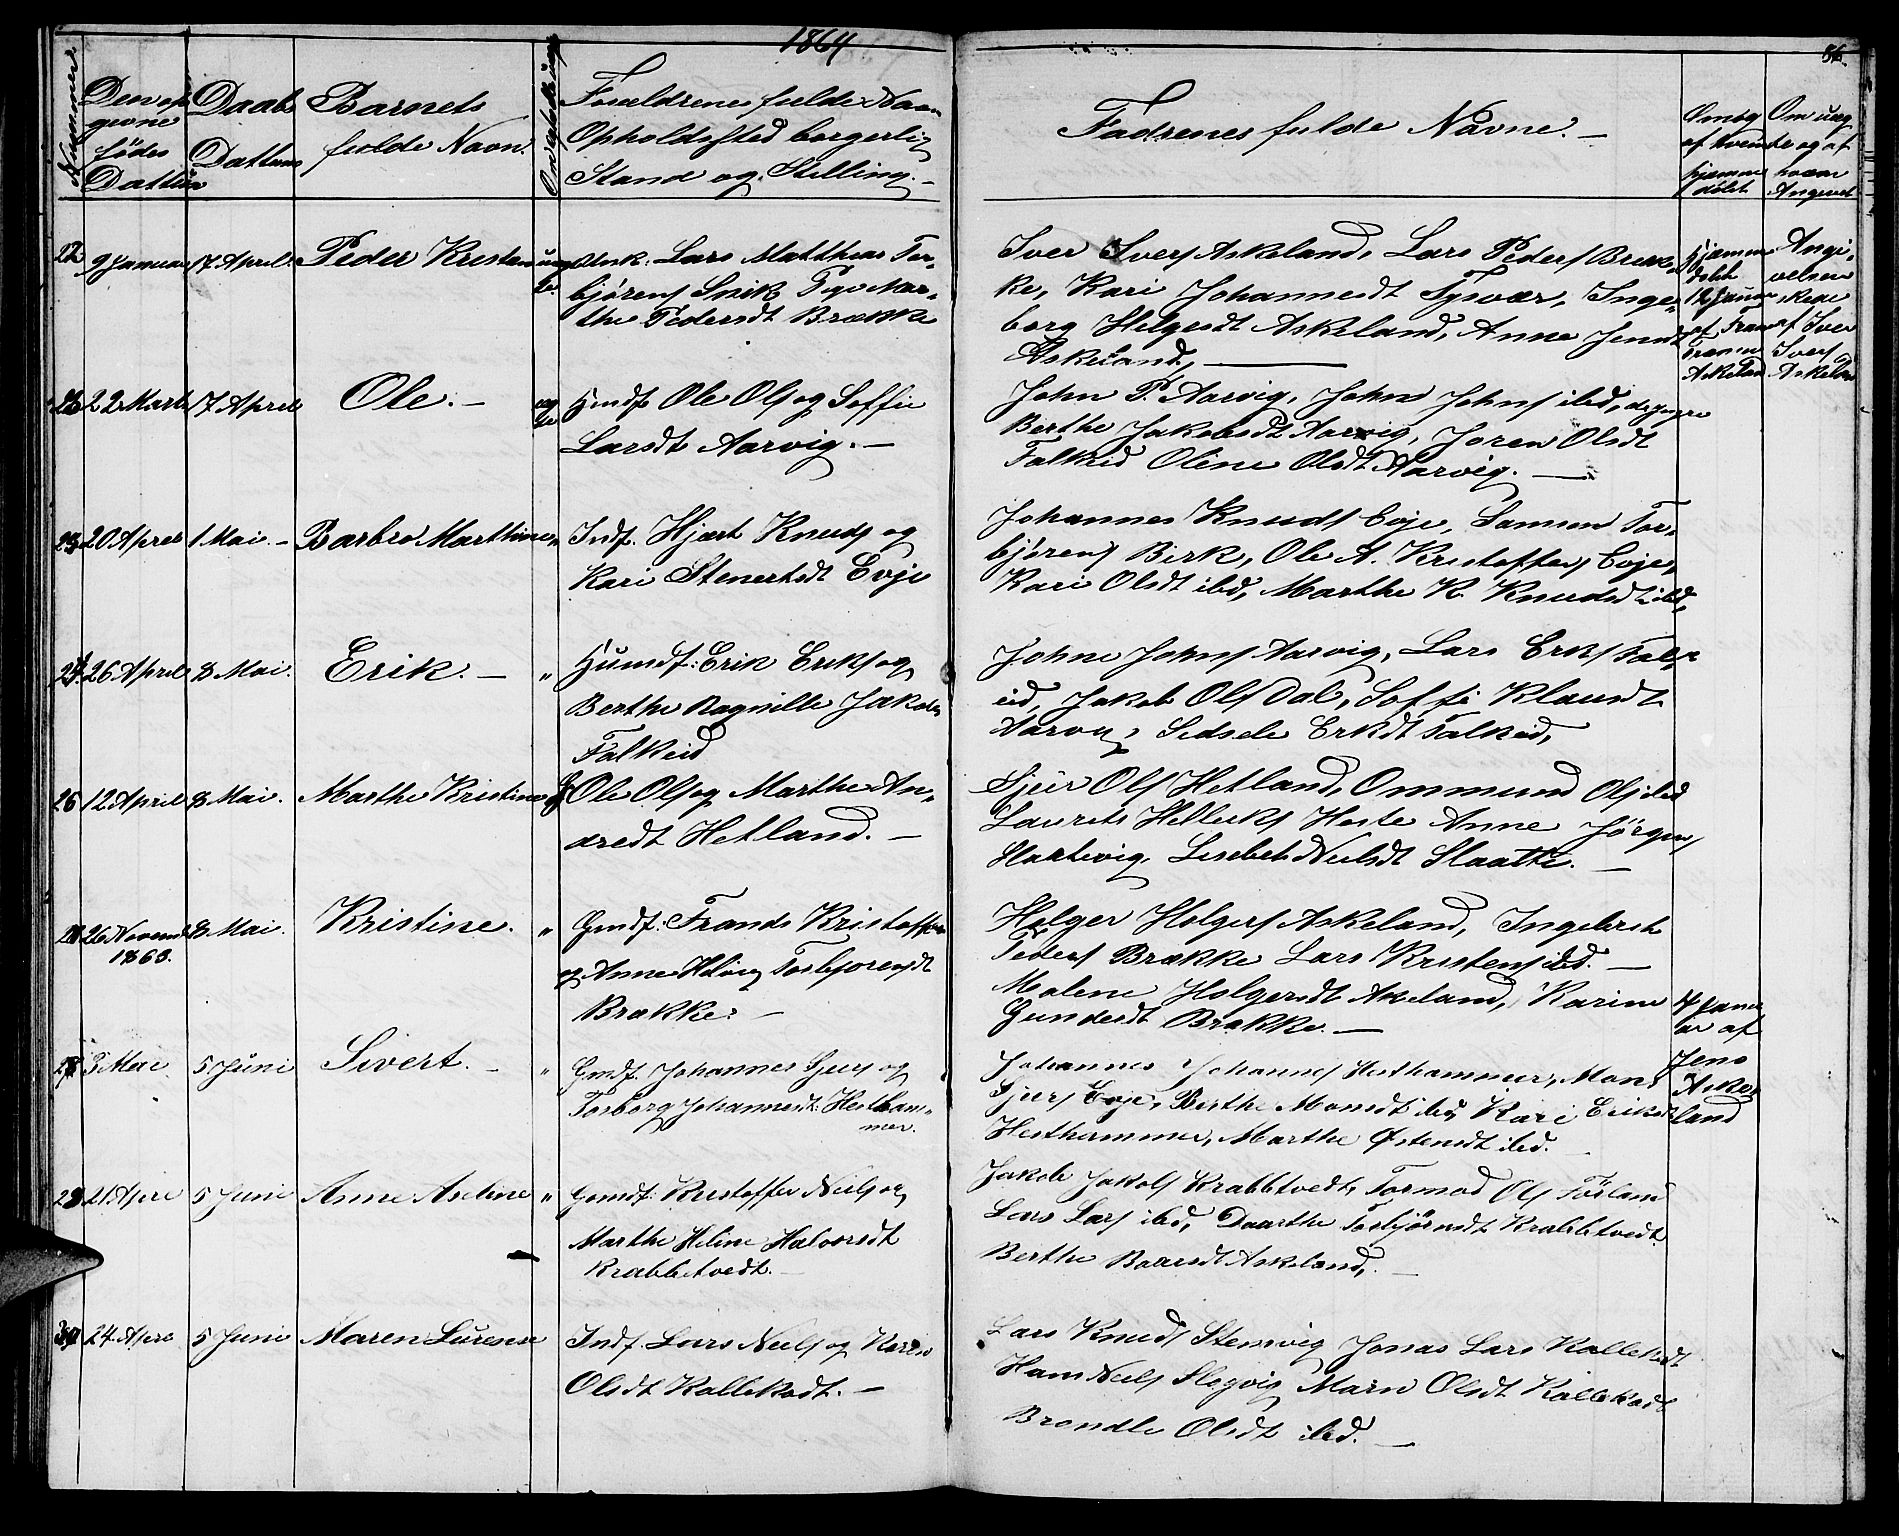 1864
86.
Nummer
Den op
givne
födes
Dattum
Daabs
Dattum
Barnets
fulde Navn.
Forældrenes fulde Navn
Opholdssted borgerlig
Stand og Stilling.
Fadrenes fulde Navne. —
af hvem
hjemme
døbt
Om uæg
te og af
hvem
Angivet
22
9 Januar
17 April
Peder Kristan
Unk: Lars Matthias Tor-
bjørens Snik Pige Mar-
the Pedersdt Brække
Iver Ivers Askeland, Lars Peders Bræk-
ke, Kari Johannesdt Tysvær, Inge-
borg Helgesdt Askeland, Anne Jensdt
Askeland, —
Hjemme
døbt
12 Januar
af Frans
Askeland
Angi-
velsen
skede
af Iver
Ivers
Askeland
22 Marts
17 April
Ole. —
Gmdf Ole Ols og Soffie
Larsdt Aarvig. —
John P. Aarvig, John Johns ibd, de yngre
Berthe Jakobsdt Aarvig, Joren Olsdt
Falkeid Oline Olsdt Aarvig. —
20 April
1 Mai. —
Barbro Marthine
Indf. Hjert Knuds og
Kari Stenersdt Evje
Johannes Knuds Evje, Samson Tor-
bjørens Birk, Ole A. Kristoffers Evje,
Kari Olsdt ibd, Marthe K. Knudsdt ibd,
26 April
8 Mai.
Erik. —
"
Huusdf: Erik Eriks og
Berthe Ragnille Jakobs
Falkeid
Johne Johns Aarvig, Lars Erks Falk-
eid, Jakob Ols Dal, Soffi Klausdt
Aarvig, Sidsele Erkdt Falkeid,
26
12 April
8 Mai.
Marthe Kristine
Ole Ols og Marthe An-
dredt Hetland. —
Sjur Ols Hetland, Ommund Ols ibd
Laurits Helleks Heste Anne Jörgens
Hartevig. Lisebet Neilsdt Slaatte. —
26 Novemb
1863.
8 Mai.
Kristine.
"
Gmdf. Frands Kristoffers
og Anne Torbjorensdt
Brække. —
Helger Holgers Askeland, Ingebret
Peders Brække Lars Kristens ibd. —
Malene Holgersdt Askeland, Karine
Gundersdt Brække. —
4 Janu
ar af
Jens
Aske-
land
3 Mai
5 Juni
Sivert. —
"
Gmdf. Johannes Sjurs og
Torborg Johannesdt: Hestham-
mer.
Johannes Johannes Hesthammer, Mons
Sjurs Evje, Berthe Monsdt ibd, Kari Eriksdt
Hesthammer, Marthe Østensdt ibd.
21 Apri
5 Juni
Anne Axeline
"
Gmdf: Kristoffer Neils og
Marthe Heline Halvorsdt
Krabbetvedt. —
Jakob Jakobs Krabbetvedt, Tormod Ols Förland
Lars Lars ibd, Daarthe Torbjörnsdt Krabbetvedt.
Berthe Baarsdt Askeland, —
24. Apri
5 Juni
Maren Lurense
Indf. Lars Neils og Karen
Olsdt Kallekodt. —
Lars Knuds Stensvig Jonas Lars Kallekodt
Hans Neils Slogvig Marn Olsdt Kallekodt
Brondle Olsdt ibd. —